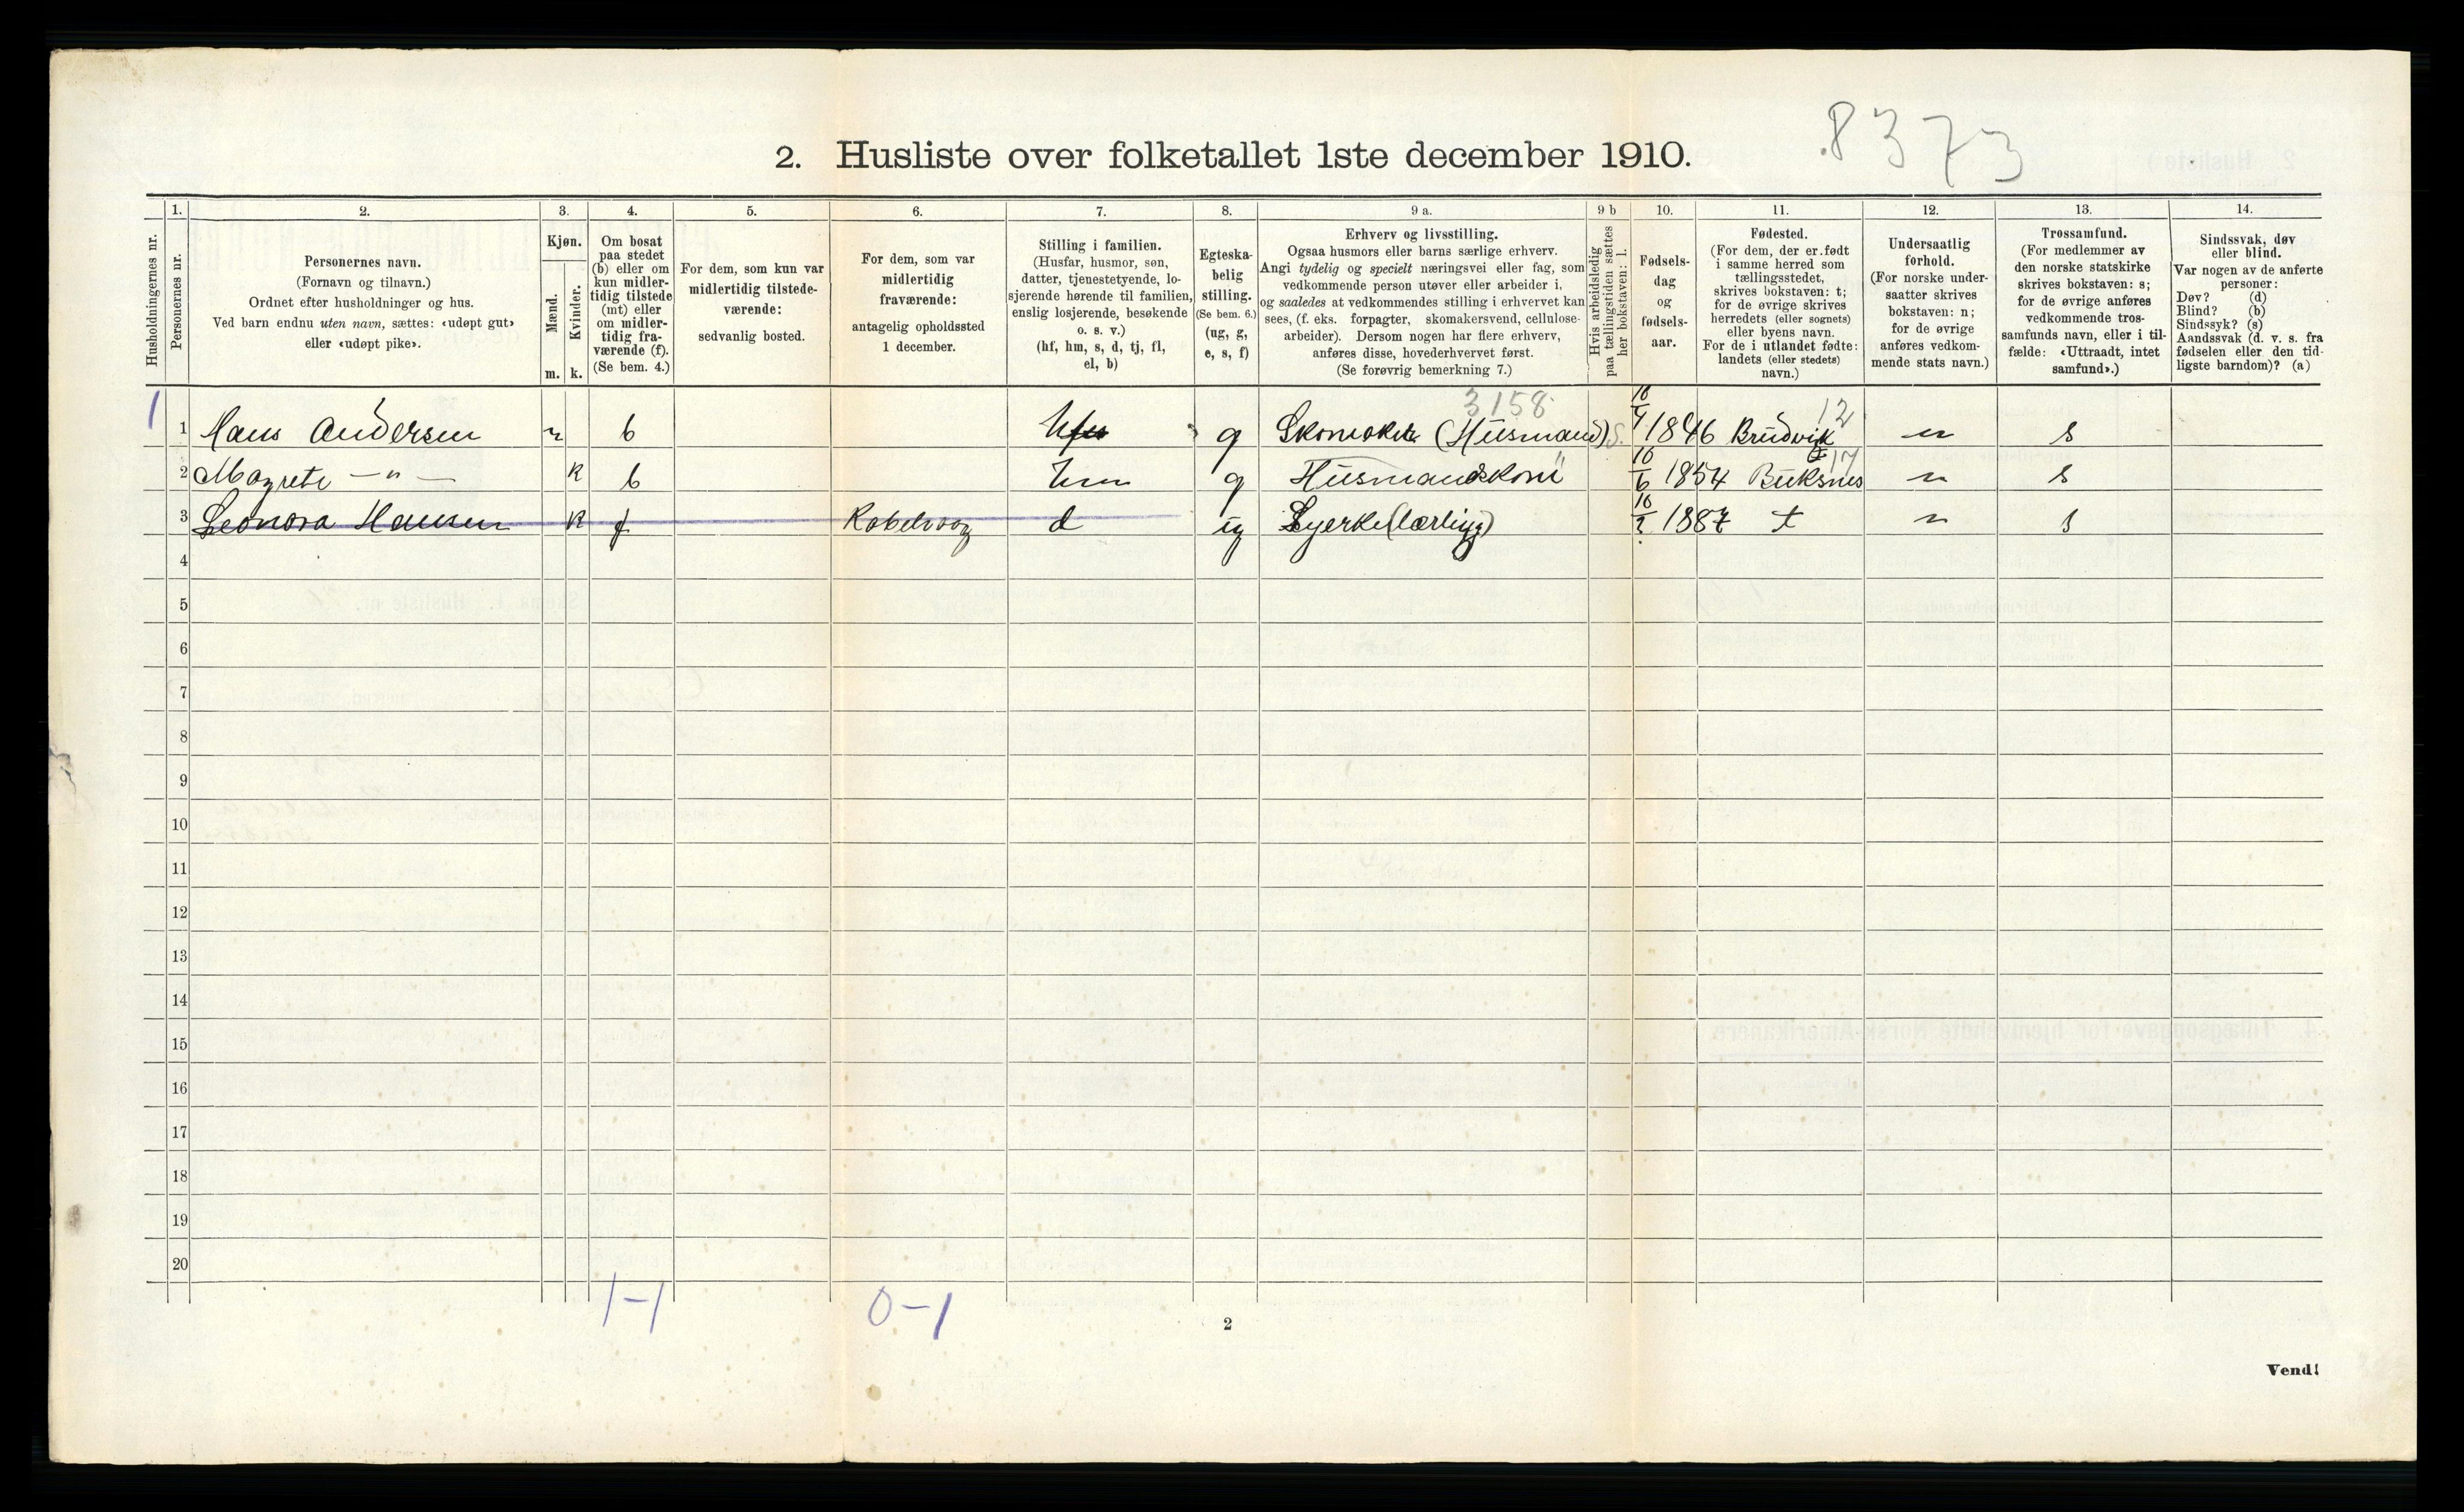 8373
2. Husliste over folketallet 1ste december 1910.
Husholdningernes nr.
1.
Personernes nr.
2.
Personernes navn.
(Fornavn og tilnavn.)
Ordnet efter husholdninger og hus.
Ved barn endnu uten navn, sættes: «udøpt gut»
eller «udøpt pike».
3.
Kjøn.
Mænd.
Kvinder.
m.
k.
4.
Om bosat
paa stedet
(b) eller om
kun midler-
tidig tilstede
(mt) eller
om midler-
tidig fra-
værende (f).
(Se bem. 4.)
5.
For dem, som kun var
midlertidig tilstede-
værende:
sedvanlig bosted.
6.
For dem, som var
midlertidig
fraværende:
antagelig opholdssted
1 december.
7.
Stilling i familien.
(Husfar, husmor, søn,
datter, tjenestetyende, lo-
sjerende hørende til familien,
enslig losjerende, besøkende
o. s. v.)
(hf, hm, s, d, tj, fl,
el, b)
8.
Egteska-
belig
stilling.
(Se bem. 6.)
(ug, g,
e, s, f)
9 a.
Erhverv og livsstilling.
Ogsaa husmors eller barns særlige erhverv.
Angi tydelig og specielt næringsvei eller fag, som
vedkommende person utøver eller arbeider i,
og saaledes at vedkommendes stilling i erhvervet kan
sees, (f. eks. forpagter, skomakersvend, cellulose-
arbeider). Dersom nogen har flere erhverv,
anføres disse, hovederhvervet først.
(Se forøvrig bemerkning 7.)
9 b
Hvis arbeidsledig
paa tællingstiden sættes
her bokstaven: l.
10.
Fødsels-
dag
og
fødsels-
aar.
11.
Fødested.
(For dem, der er født
i samme herred som
tællingsstedet,
skrives bokstaven: t;
for de øvrige skrives
herredets (eller sognets)
eller byens navn.
For de i utlandet fødte:
landets (eller stedets)
navn.)
12.
Undersaatlig
forhold.
(For norske under-
saatter skrives
bokstaven: n;
for de øvrige
anføres vedkom-
mende stats navn.)
13.
Trossamfund.
(For medlemmer av
den norske statskirke
skrives bokstaven: s;
for de øvrige anføres
vedkommende tros-
samfunds navn, eller i til-
fælde: «Uttraadt, intet
samfund».)
14.
Sindssvak, døv
eller blind.
Var nogen av de anførte
personer:
Døv? (d)
Blind? (b)
Sindssyk? (s)
Aandssvak (d. v. s. fra
fødselen eller den tid-
ligste barndom)? (a)
3158 12
1 1 Hans Andersen m b g Skomaker (Husmand) 1846 Brudvik n s
17
2 Magrete —"— k b hm g Husmandskone 10/6 1854 Buksnes n s
3 Leonora Hansen k f Kabelvaag d ug 10/? 1887 t n s
4
5
6
7
8
9
10
11
12
13
14
15
16
17
18
19
20
1-1 0-1
2
Vend!